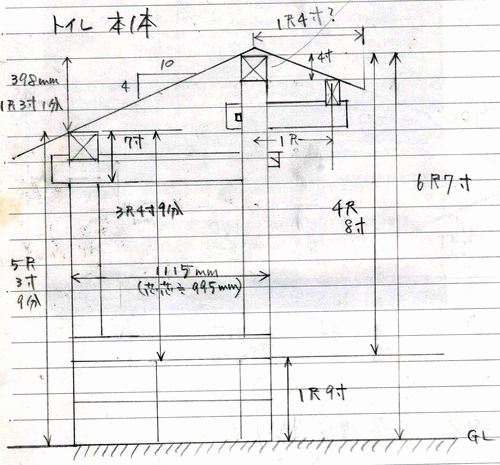 トイレ 本1本
1尺4寸?
10
4
4寸
398mm
1尺3寸1分
7寸
1尺
3尺4寸9分
4尺
8寸
6尺7寸
5尺
3寸
9分
1115mm
(芯芯≒995mm)
1尺9寸
GL